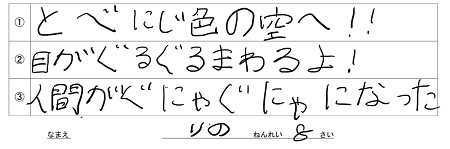 ① とべにじ色の空へ!!
② 目がぐるぐるまわるよ!
③ 人間がぐにゃぐにゃになった
なまえ りの ねんれい 8 さい